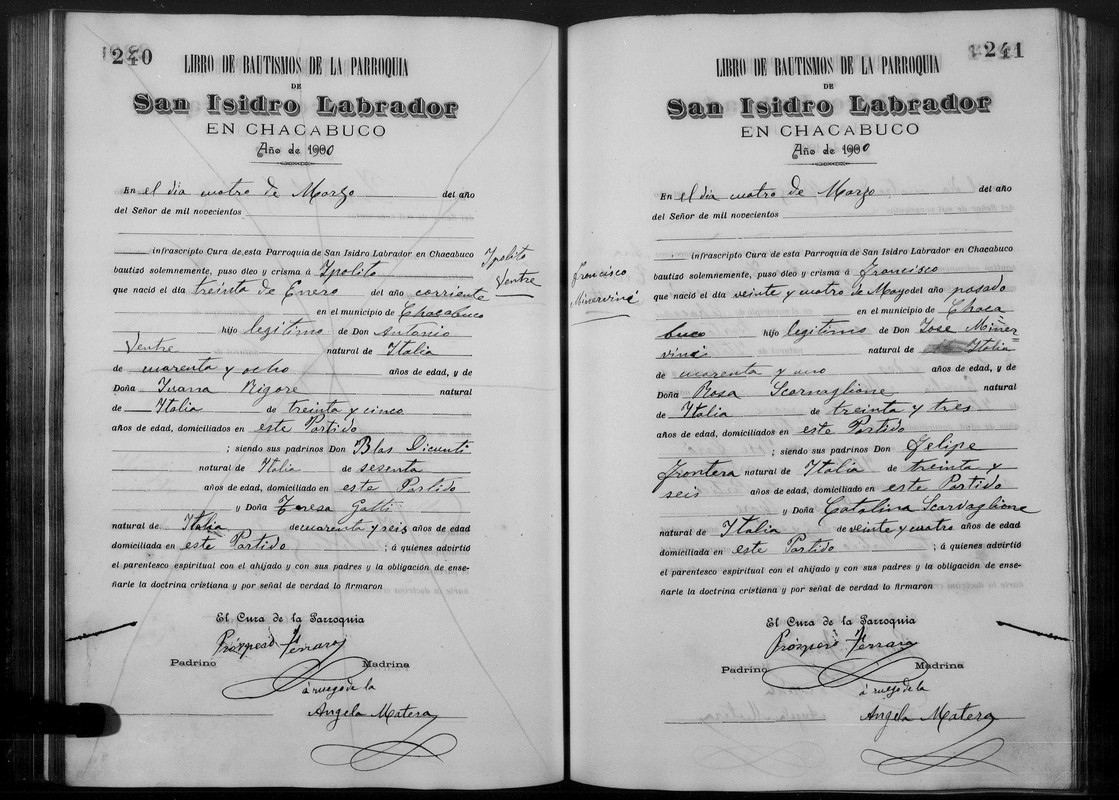 240
LIBRO DE BAUTISMOS DE LA PARROQUIA
DE
San Isidro Labrador
EN CHACABUCO
Año de 1900
En el dia cuatro de Marzo del año
del Señor de mil novecientos
infrascripto Cura de esta Parroquia de San Isidro Labrador en Chacabuco
bautizó solemnemente, puso óleo y crisma á Ypolito
Ypolito
Ventre
que nació el día treinta de Enero del año corriente
en el municipio de Chacabuco
hijo legitimo de Don Antonio
Ventre natural de Italia
de cuarenta y ocho años de edad, y de
Doña Juana Rigore natural
de Italia de treinta y cinco
años de edad, domiciliados en este Partido
; siendo sus padrinos Don Blas
natural de Italia de sesenta
años de edad, domiciliado en este Partido
y Doña Teresa Gatti
natural de Italia de cuarenta y seis años de edad
domiciliada en este Partido ; á quienes advirtió
el parentesco espiritual con el ahijado y con sus padres y la obligación de ense-
ñarle la doctrina cristiana y por señal de verdad lo firmaron
El Cura de la Parroquia
Próspero Ferraro
Padrino Madrina
á ruego de la
Angela Matera
241
LIBRO DE BAUTISMOS DE LA PARROQUIA
DE
San Isidro Labrador
EN CHACABUCO
Año de 1900
En el dia cuatro de Marzo del año
del Señor de mil novecientos
infrascripto Cura de esta Parroquia de San Isidro Labrador en Chacabuco
Francisco
Minervini
bautizó solemnemente, puso óleo y crisma á Francisco
que nació el día veinte y cuatro de Mayo del año pasado
en el municipio de Chaca
buco hijo legitimo de Don José Miner
vini natural de Italia
de cuarenta y uno años de edad, y de
Doña Rosa Scarvaglione natural
de Italia de treinta y tres
años de edad, domiciliados en este Partido
; siendo sus padrinos Don Felipe
Frontera natural de Italia de treinta y
seis años de edad, domiciliado en este Partido
y Doña Catalina Scarvaglione
natural de Italia de veinte y cuatro años de edad
domiciliada en este Partido ; á quienes advirtió
el parentesco espiritual con el ahijado y con sus padres y la obligación de ense-
ñarle la doctrina cristiana y por señal de verdad lo firmaron
El Cura de la Parroquia
Próspero Ferraro
Padrino Madrina
á ruego de la
Angela Matera